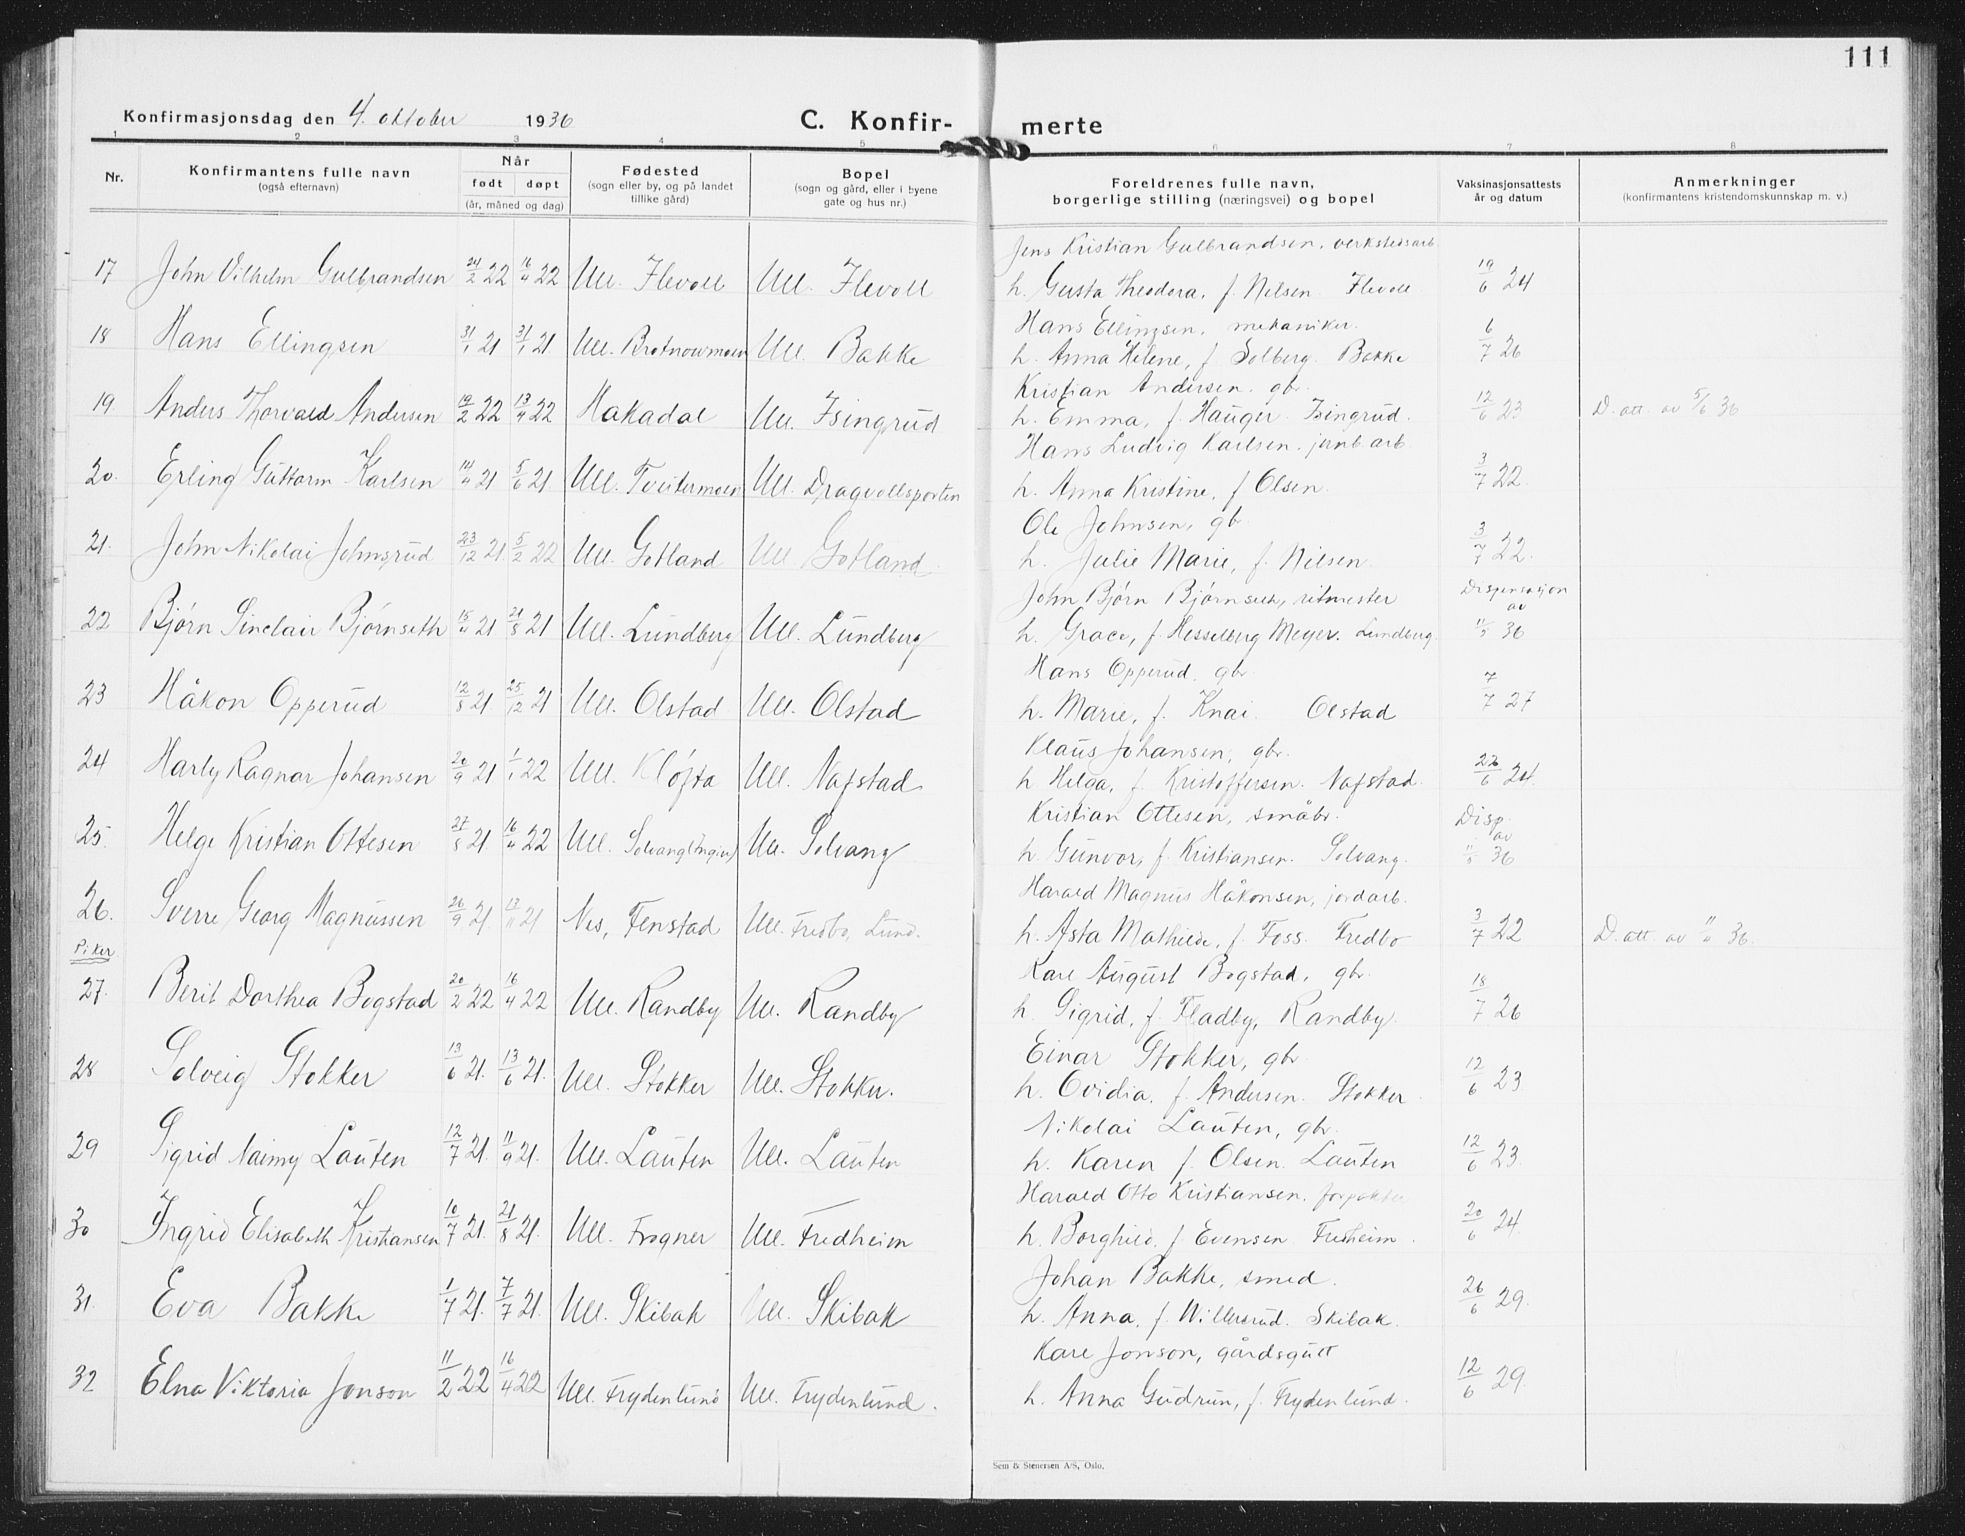 111
Konfirmasjonsdag den 4. oktober 1936 C. Konfir- merte
1 2 3 4 5 6 7 8
Nr. Konfirmantens fulle navn (også efternavn) Når født døpt (år, måned og dag) Fødested (sogn eller by, og på landet tillike gård) Bopel (sogn og gård, eller i byene gate og hus nr.) Foreldrenes fulle navn, borgerlige stilling (næringsvei) og bopel Vaksinasjonsattests år og datum Anmerkninger (konfirmantens kristendomskunnskap m. v.)
Jens Kristian Gulbrandsen, verkstedsarb.
17 John Vilhelm Gulbrandsen 24/2 22 16/4 22 Ull. Flevoll Ull. Flevoll h. Gusta Theodora, f. Nilsen Flevoll 19/6 24
Hans Ellingsen, mekaniker.
18 Hans Ellingsen 31/1 21 31/1 21 Ull. Ull. Bakke h. Anna Helene, f. Solberg. Bakke 6/7 26
Kristian Andersen. gbr.
19 Anders Thorvald Andersen 19/2 22 13/4 22 Hakadal Ull. Isingrud h. Emma, f. Hauger. Isingrud. 12/6 23 D. att. av 5/6 36
Hans Ludvig Karlsen. jernb.arb.
20. Erling Guttorm Karlsen 14/4 21 5/6 21 Ull. Tveitermoen Ull. Dragvollsporten h. Anna Kristine, f. Olsen. 3/7 22.
Ole Johnsen, gbr.
21. John Nikolai Johnsrud 23/12 21. 5/2 22 Ull. Gotland Ull. Gotland. h. Julie Marie, f. Nilsen. 3/7 22.
John Bjørn Bjørnseth, ritmester Dispensasjon av
22 Bjørn Sinclair Bjørnseth 15/4 21 21/8 21 Ull. Lundberg Ull. Lundberg h. Grace, f. Hesselberg Meyer. Lundberg. 11/5 36
Hans Opperud, gbr.
23 Håkon Opperud 12/8 21. 25/12 21 Ull. Olstad Ull. Olstad h. Marie, f. Knai. Olstad 7/7 27
Klaus Johansen, gbr.
24 Harly Ragnar Johansen 20/9 21 1/1 22 Ull. Kløfta Ull. Nafstad h. Helga, f. Kristoffersen. Nafstad. 22/6 24.
Kristian Ottesen, småbr. Disp. av
25. Helge Kristian Ottesen 27/8 21. 16/4 22 Ull. Ull. Solvang h. Gunvor, f. Kristiansen. Solvang. 11/5 36
Harald Magnus Håkonsen, jordarb.
26. Sverre Georg Magnussen 26/9 21. 13/11 21 Nes, Fenstad Ull. Fredbo, Lund. h. Asta Mathilde, f. Foss. Fredbo 3/7 22 D. att. av 36.
Piker
Kare August Bogstad, gbr.
27. Berit Dorthea Bogstad 20/2 22 16/4 22 Ull. Randby Ull. Randby h. Sigrid, f. Fladby, Randby. 18/7 26
Einar Stokker, gbr.
28 Solveig Stokker 13/6 21. 13/6 21. Ull. Stokker Ull. Stokker. h. Ovidia, f. Andersen. Stokker. 12/6 23
Nikolai Lauten, gbr.
29 Sigrid Naimy Lauten 12/7 21. 11/9 21. Ull. Lauten Ull. Lauten h. Karen f. Olsen. Lauten 12/6 23
Harald Otto Kristiansen, forpakter
30 Ingrid Elisabeth Kristiansen 10/7 21. 21/8 21. Ull. Frogner Ull. Fredheim h. Borghild, f. Evensen Fredheim. 20/6 24.
Johan Bakke, smed.
31. Eva Bakke 1/7 21. 7/7 21. Ull. Skibak Ull. Skibak h. Anna, f. Willersrud. Skibak. 26/6 29.
Kare Jonson, gårdsgutt
32 Elna Viktoria Jonson 11/2 22 16/4 22 Ull. Frydenlund Ull. Frydenlund. h. Anna Gudrun, f. Frydenlund. 12/6 29
Sem & Stenersen A/S, Oslo.